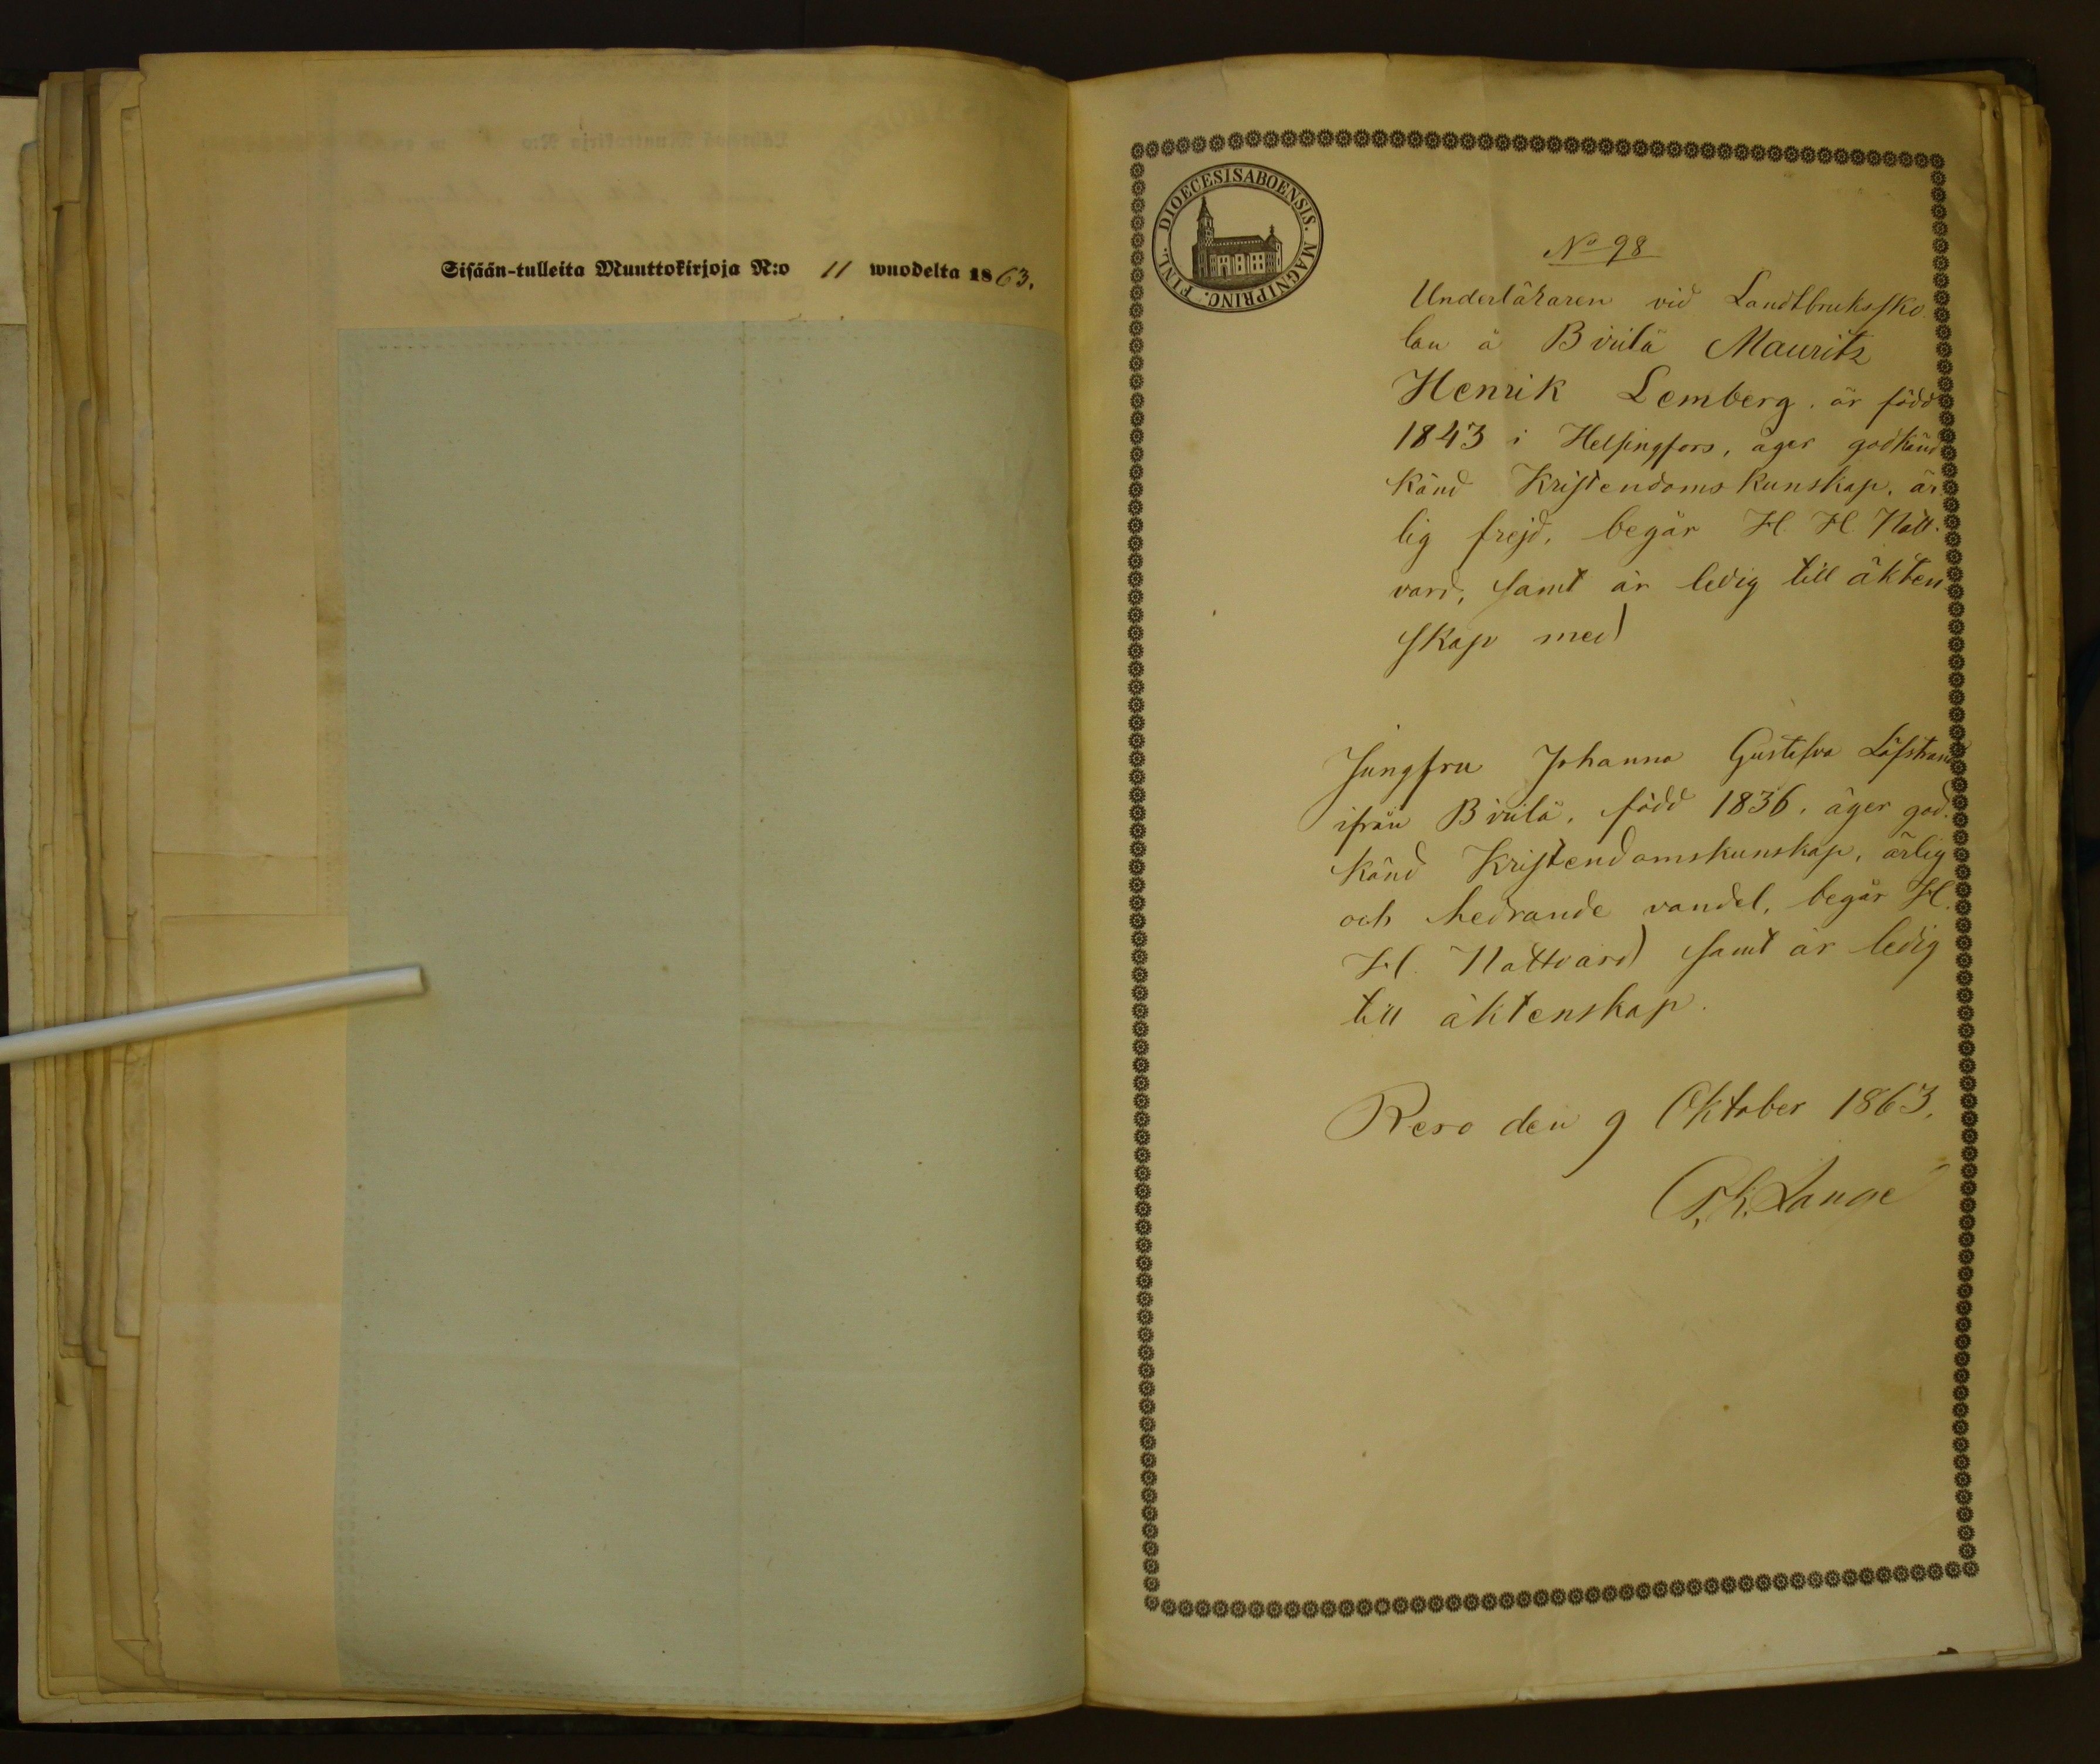 Sisään-tulleita Muuttokirjoja N:o 11 wuodelta 1863.
DIOECESISABOENSIS. MAGNIPRINC. FINL.
No 98
Underläraren vid Landtbruksskо
lan å Bviilä Mauritz
Henrik Lemberg. är född
1843 i Helsingfors, äger godkänd
känd Kristendoms kunskap, är
lig frejd, begår H. H. Natt-
vard, samt är ledig till äkten
skap med
Jungfru Johanna Gustafva Löfstrand
ifrån Bviilä, född 1836, äger god
känd Kristendomskunskap, ärlig
och hedrande vandel, begår H.
H. Nattvard samt är ledig
till äktenskap.
Reso den 9 Oktober 1863.
Lange